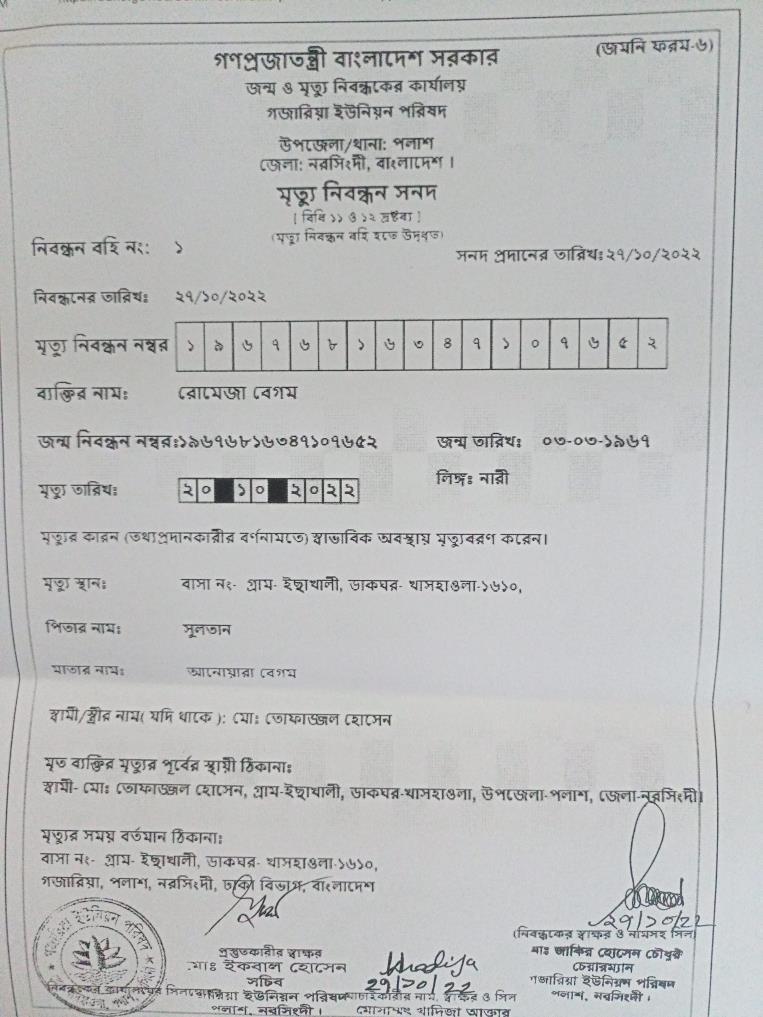 (জমনি ফরম-৬)
গণপ্রজাতন্ত্রী বাংলাদেশ সরকার
জন্ম ও মৃত্যু নিবন্ধকের কার্যালয়
গজারিয়া ইউনিয়ন পরিষদ
উপজেলা/থানা: পলাশ
জেলা: নরসিংদী, বাংলাদেশ ।
মৃত্যু নিবন্ধন সনদ
[ বিধি ১১ ও ১২ দ্রষ্টব্য ]
(মৃত্যু নিবন্ধন বহি হতে উদ্বৃত)
নিবন্ধন বহি নং: ১
সনদ প্রদানের তারিখ: ২৭/১০/২০২২
নিবন্ধনের তারিখ: ২৭/১০/২০২২
মৃত্যু নিবন্ধন নম্বর ১ ৯ ৬ ৭ ৬ ৮ ১ ৬ ৩ ৪ ৭ ১ ০ ৭ ৬ ৫ ২
ব্যক্তির নাম: রোমেজা বেগম
জন্ম নিবন্ধন নম্বর:১৯৬৭৬৮১৬৩৪৭১০৭৬৫২ জন্ম তারিখ: ০৩-০৩-১৯৬৭
মৃত্যু তারিখ: ২০ ১০ ২০২২ লিঙ্গ: নারী
মৃত্যুর কারন (তথ্যপ্রদানকারীর বর্ণনামতে) স্বাভাবিক অবস্থায় মৃত্যুবরণ করেন।
মৃত্যু স্থান: বাসা নং- গ্রাম- ইছাখালী, ডাকঘর- খাসহাওলা-১৬১০,
পিতার নাম: সুলতান
মাতার নাম: আনোয়ারা বেগম
স্বামী/স্ত্রীর নাম( যদি থাকে ): মো: তোফাজ্জল হোসেন
মৃত ব্যক্তির মৃত্যুর পূর্বের স্থায়ী ঠিকানা:
স্বামী- মো: তোফাজ্জল হোসেন, গ্রাম-ইছাখালী, ডাকঘর-খাসহাওলা, উপজেলা-পলাশ, জেলা-নরসিংদী।
মৃত্যুর সময় বর্তমান ঠিকানা:
বাসা নং- গ্রাম- ইছাখালী, ডাকঘর- খাসহাওলা-১৬১০,
গজারিয়া, পলাশ, নরসিংদী, ঢাকা বিভাগ, বাংলাদেশ
গজারিয়া ইউনিয়ন পরিষদ
প্রস্তুতকারীর স্বাক্ষর
মোঃ ইকবাল হোসেন
সচিব
গজারিয়া ইউনিয়ন পরিষদ
পলাশ, নরসিংদী ।
Khadiya
27/10/22
যাচাইকারীর নাম, স্বাক্ষর ও সিল
মোসাম্মৎ খাদিজা আক্তার
27/10/22
(নিবন্ধকের স্বাক্ষর ও নামসহ সিল)
মোঃ জাকির হোসেন চৌধুরী
চেয়ারম্যান
গজারিয়া ইউনিয়ন পরিষদ
পলাশ, নরসিংদী ।